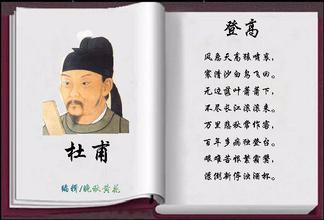 杜甫
编辑/晚秋黄花
登高
风急天高猿啸哀，
渚清沙白鸟飞回。
无边落叶萧萧下，
不尽长江滚滚来。
万里悲秋常作客，
百年多病独登台。
艰难苦恨繁霜鬓，
潦倒新停浊酒杯。